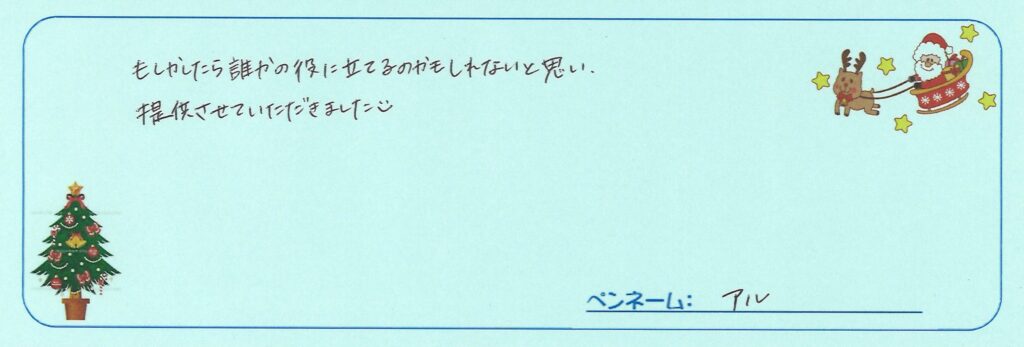 もしかしたら誰かの役に立てるのかもしれないと思い、
提供させていただきました
ペンネーム: アル